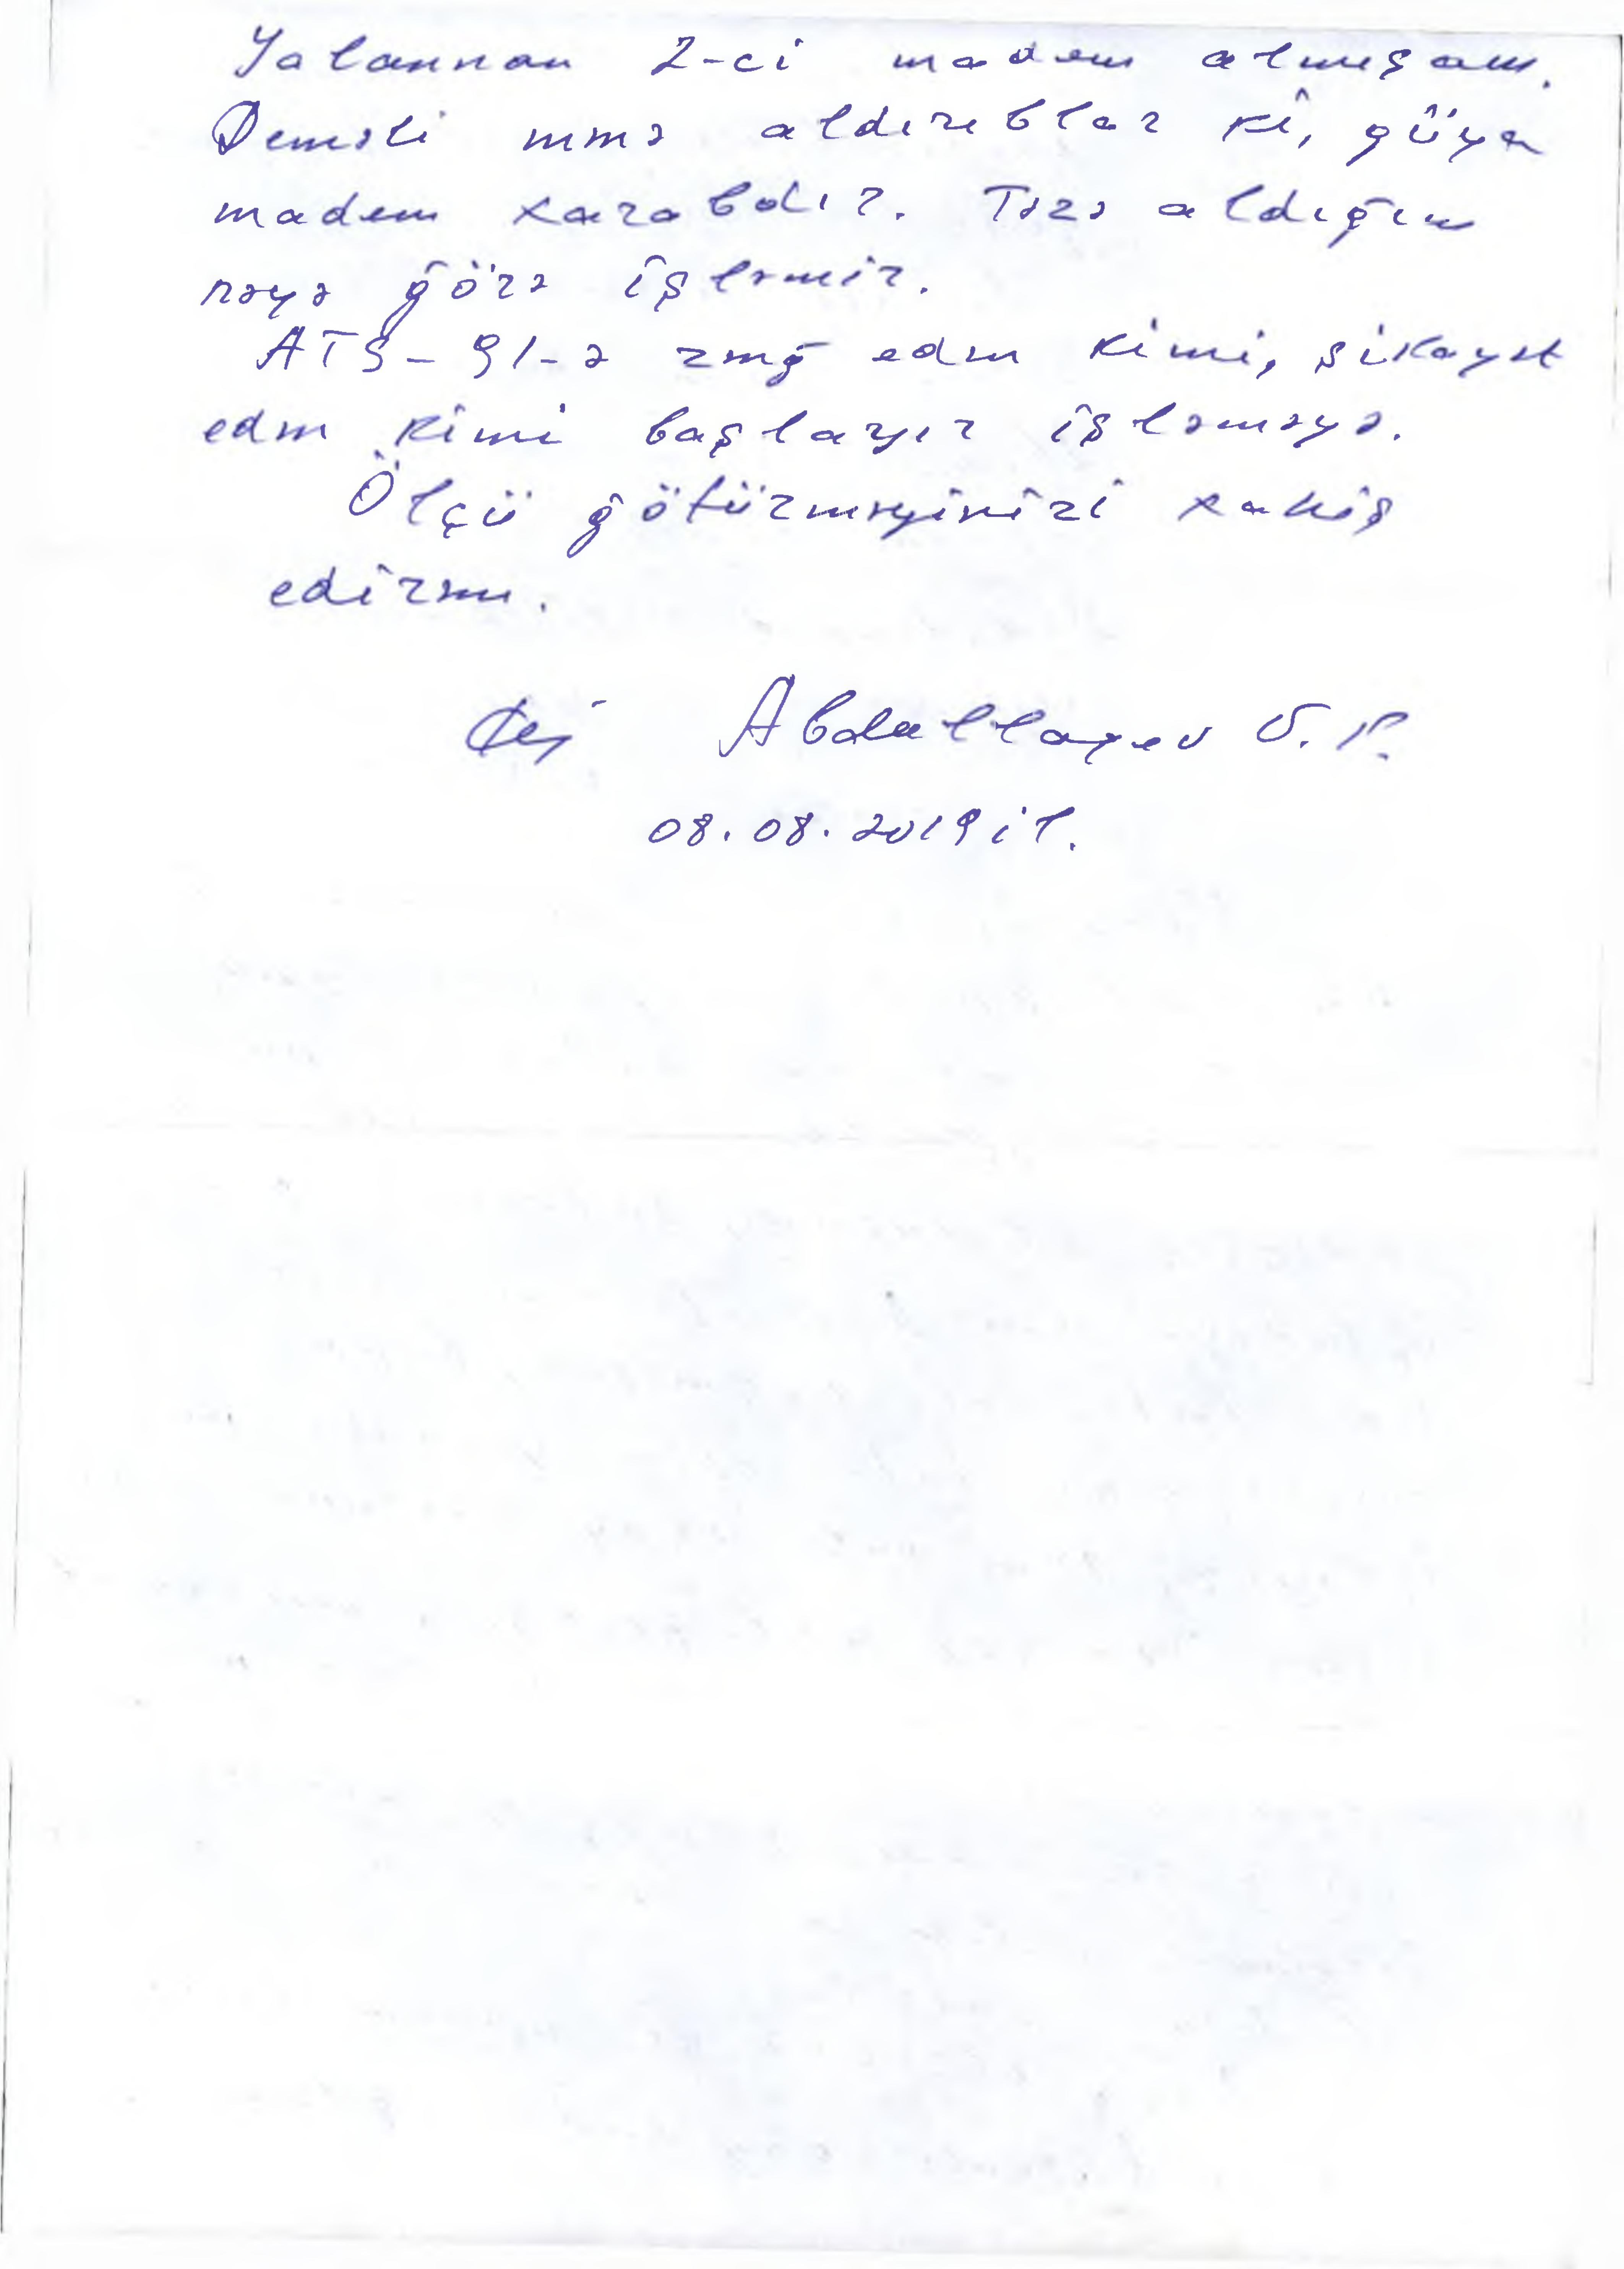 Yalannan 2-ci madem almışam.
Deməli mənə aldırıblar ki, güya
madem xarabdır. Təzə aldığım
nəyə görə işləmir.
ATS-91-ə zəng edən kimi, şikayət
edən kimi başlayır işləməyə.
Ölçü götürməyinizi xahiş
edirəm.
Abdullayev V.
08.08.2019 il.